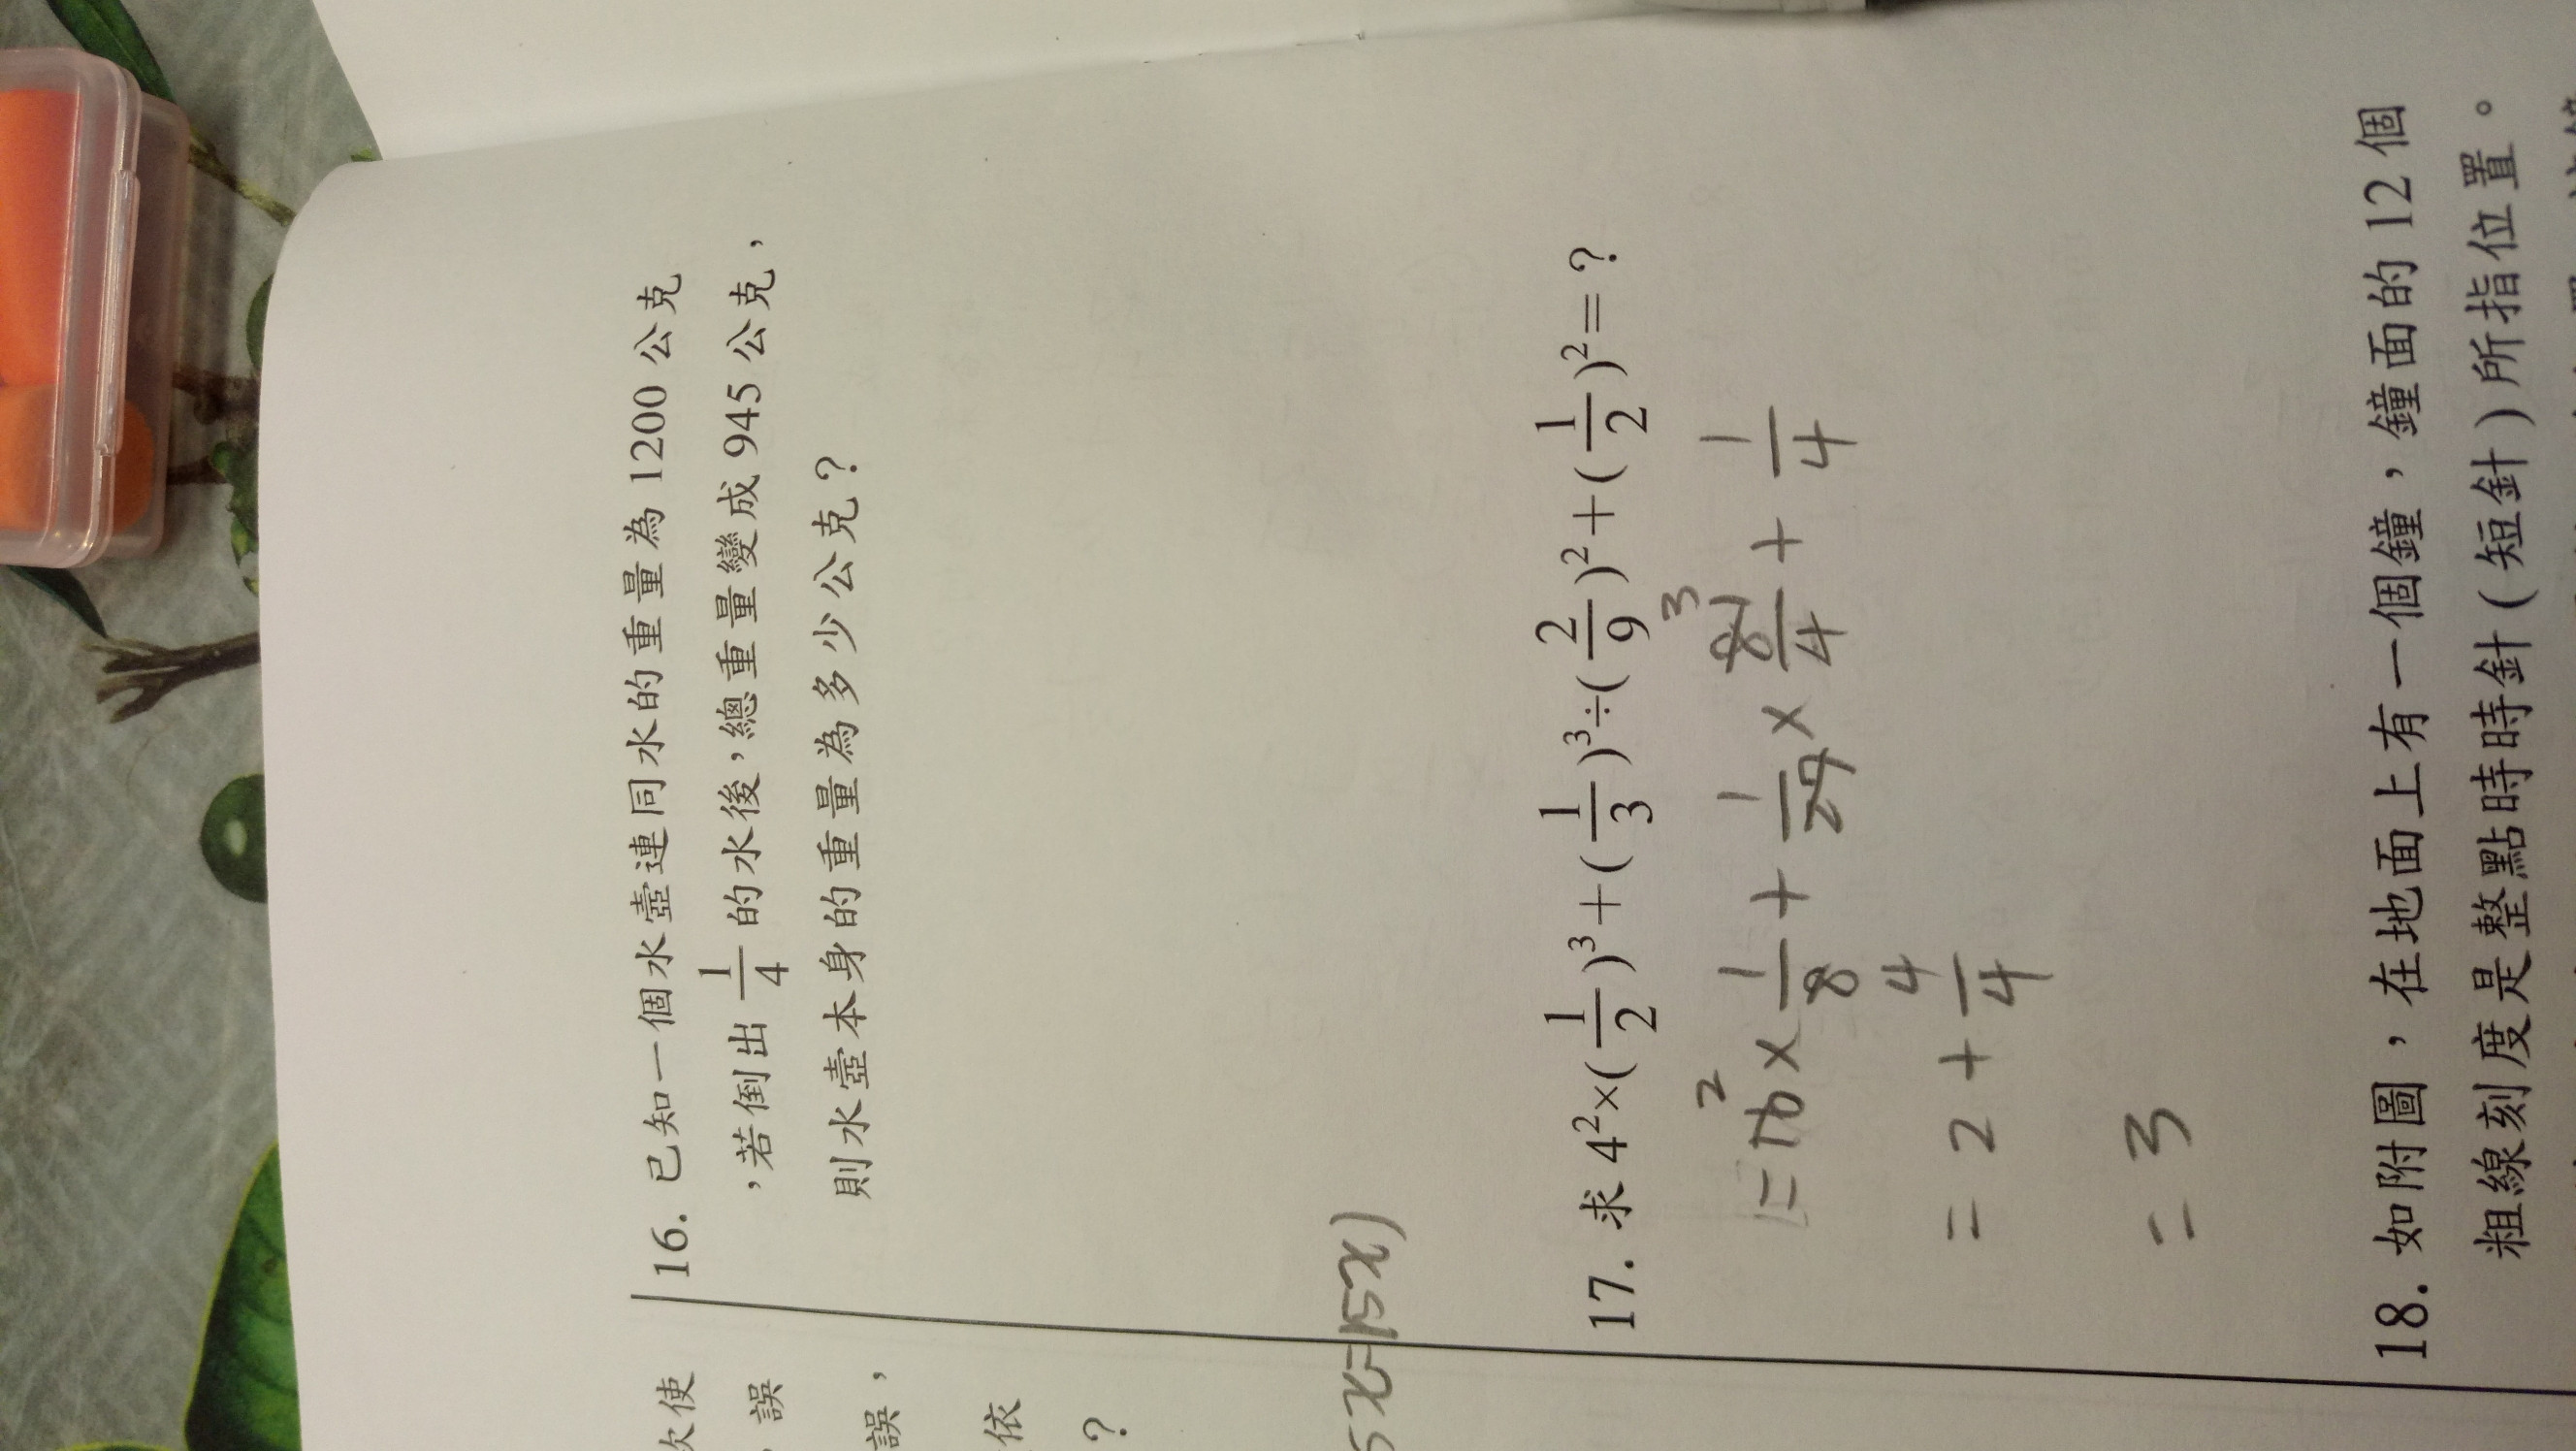 16. 已知一個水壺連同水的重量為 1200 公克
，若倒出 1/4 的水後，總重量變成 945 公克，
則水壺本身的重量為多少公克？
17. 求 4²×(1/2)³＋(1/3)³÷(2/9)²＋(1/2)²＝？
=16 2 × 1/8 + 1/27 × 81 3/4 + 1/4
= 2 + 4/4
= 3
18. 如附圖，在地面上有一個鐘，鐘面的 12 個
粗線刻度是整點時時針（短針）所指位置。
使
誤
誤，
依
？
5x=15x)